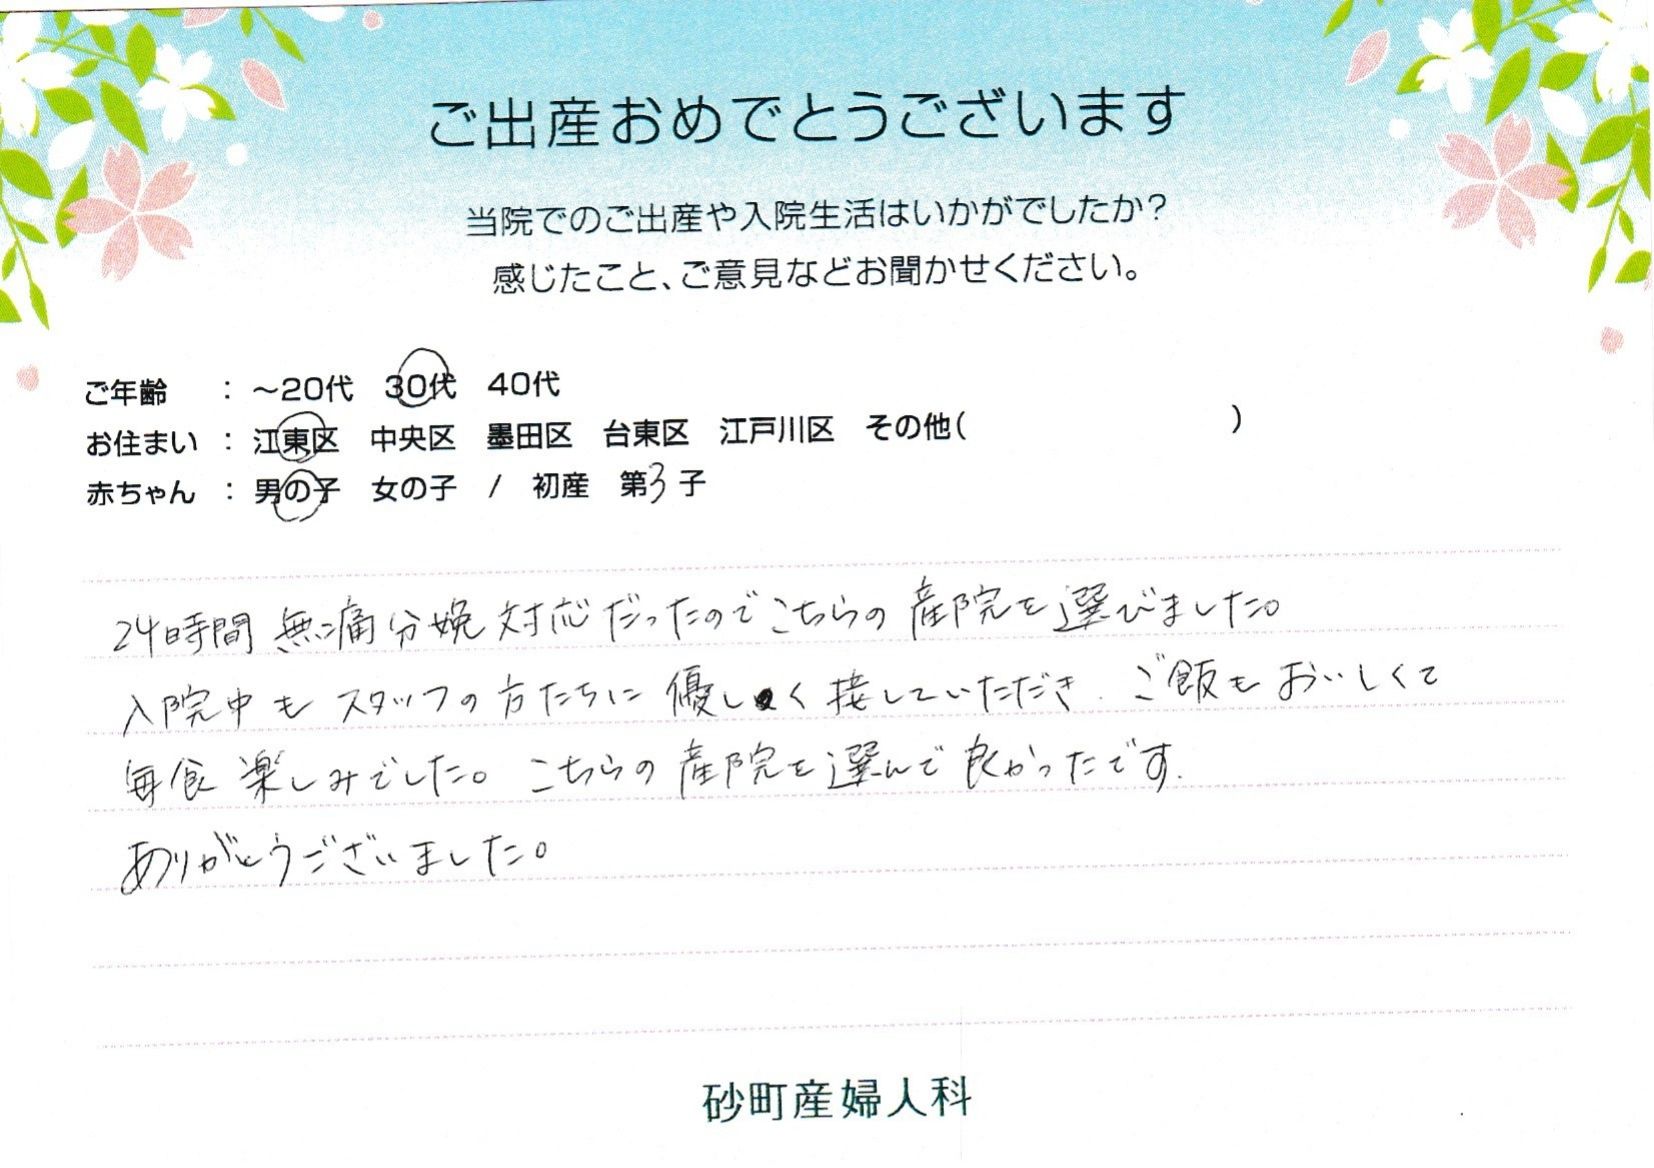 ご出産おめでとうございます
当院でのご出産や入院生活はいかがでしたか？
感じたこと、ご意見などお聞かせください。
ご年齢 ： ～20代 30代 40代
お住まい ： 江東区 中央区 墨田区 台東区 江戸川区 その他( )
赤ちゃん ： 男の子 女の子 / 初産 第3子
24時間無痛分娩対応だったのでこちらの産院を選びました。
入院中もスタッフの方たちに優しく接していただき、ご飯もおいしくて
毎食楽しみでした。こちらの産院を選んで良かったです。
ありがとうございました。
砂町産婦人科